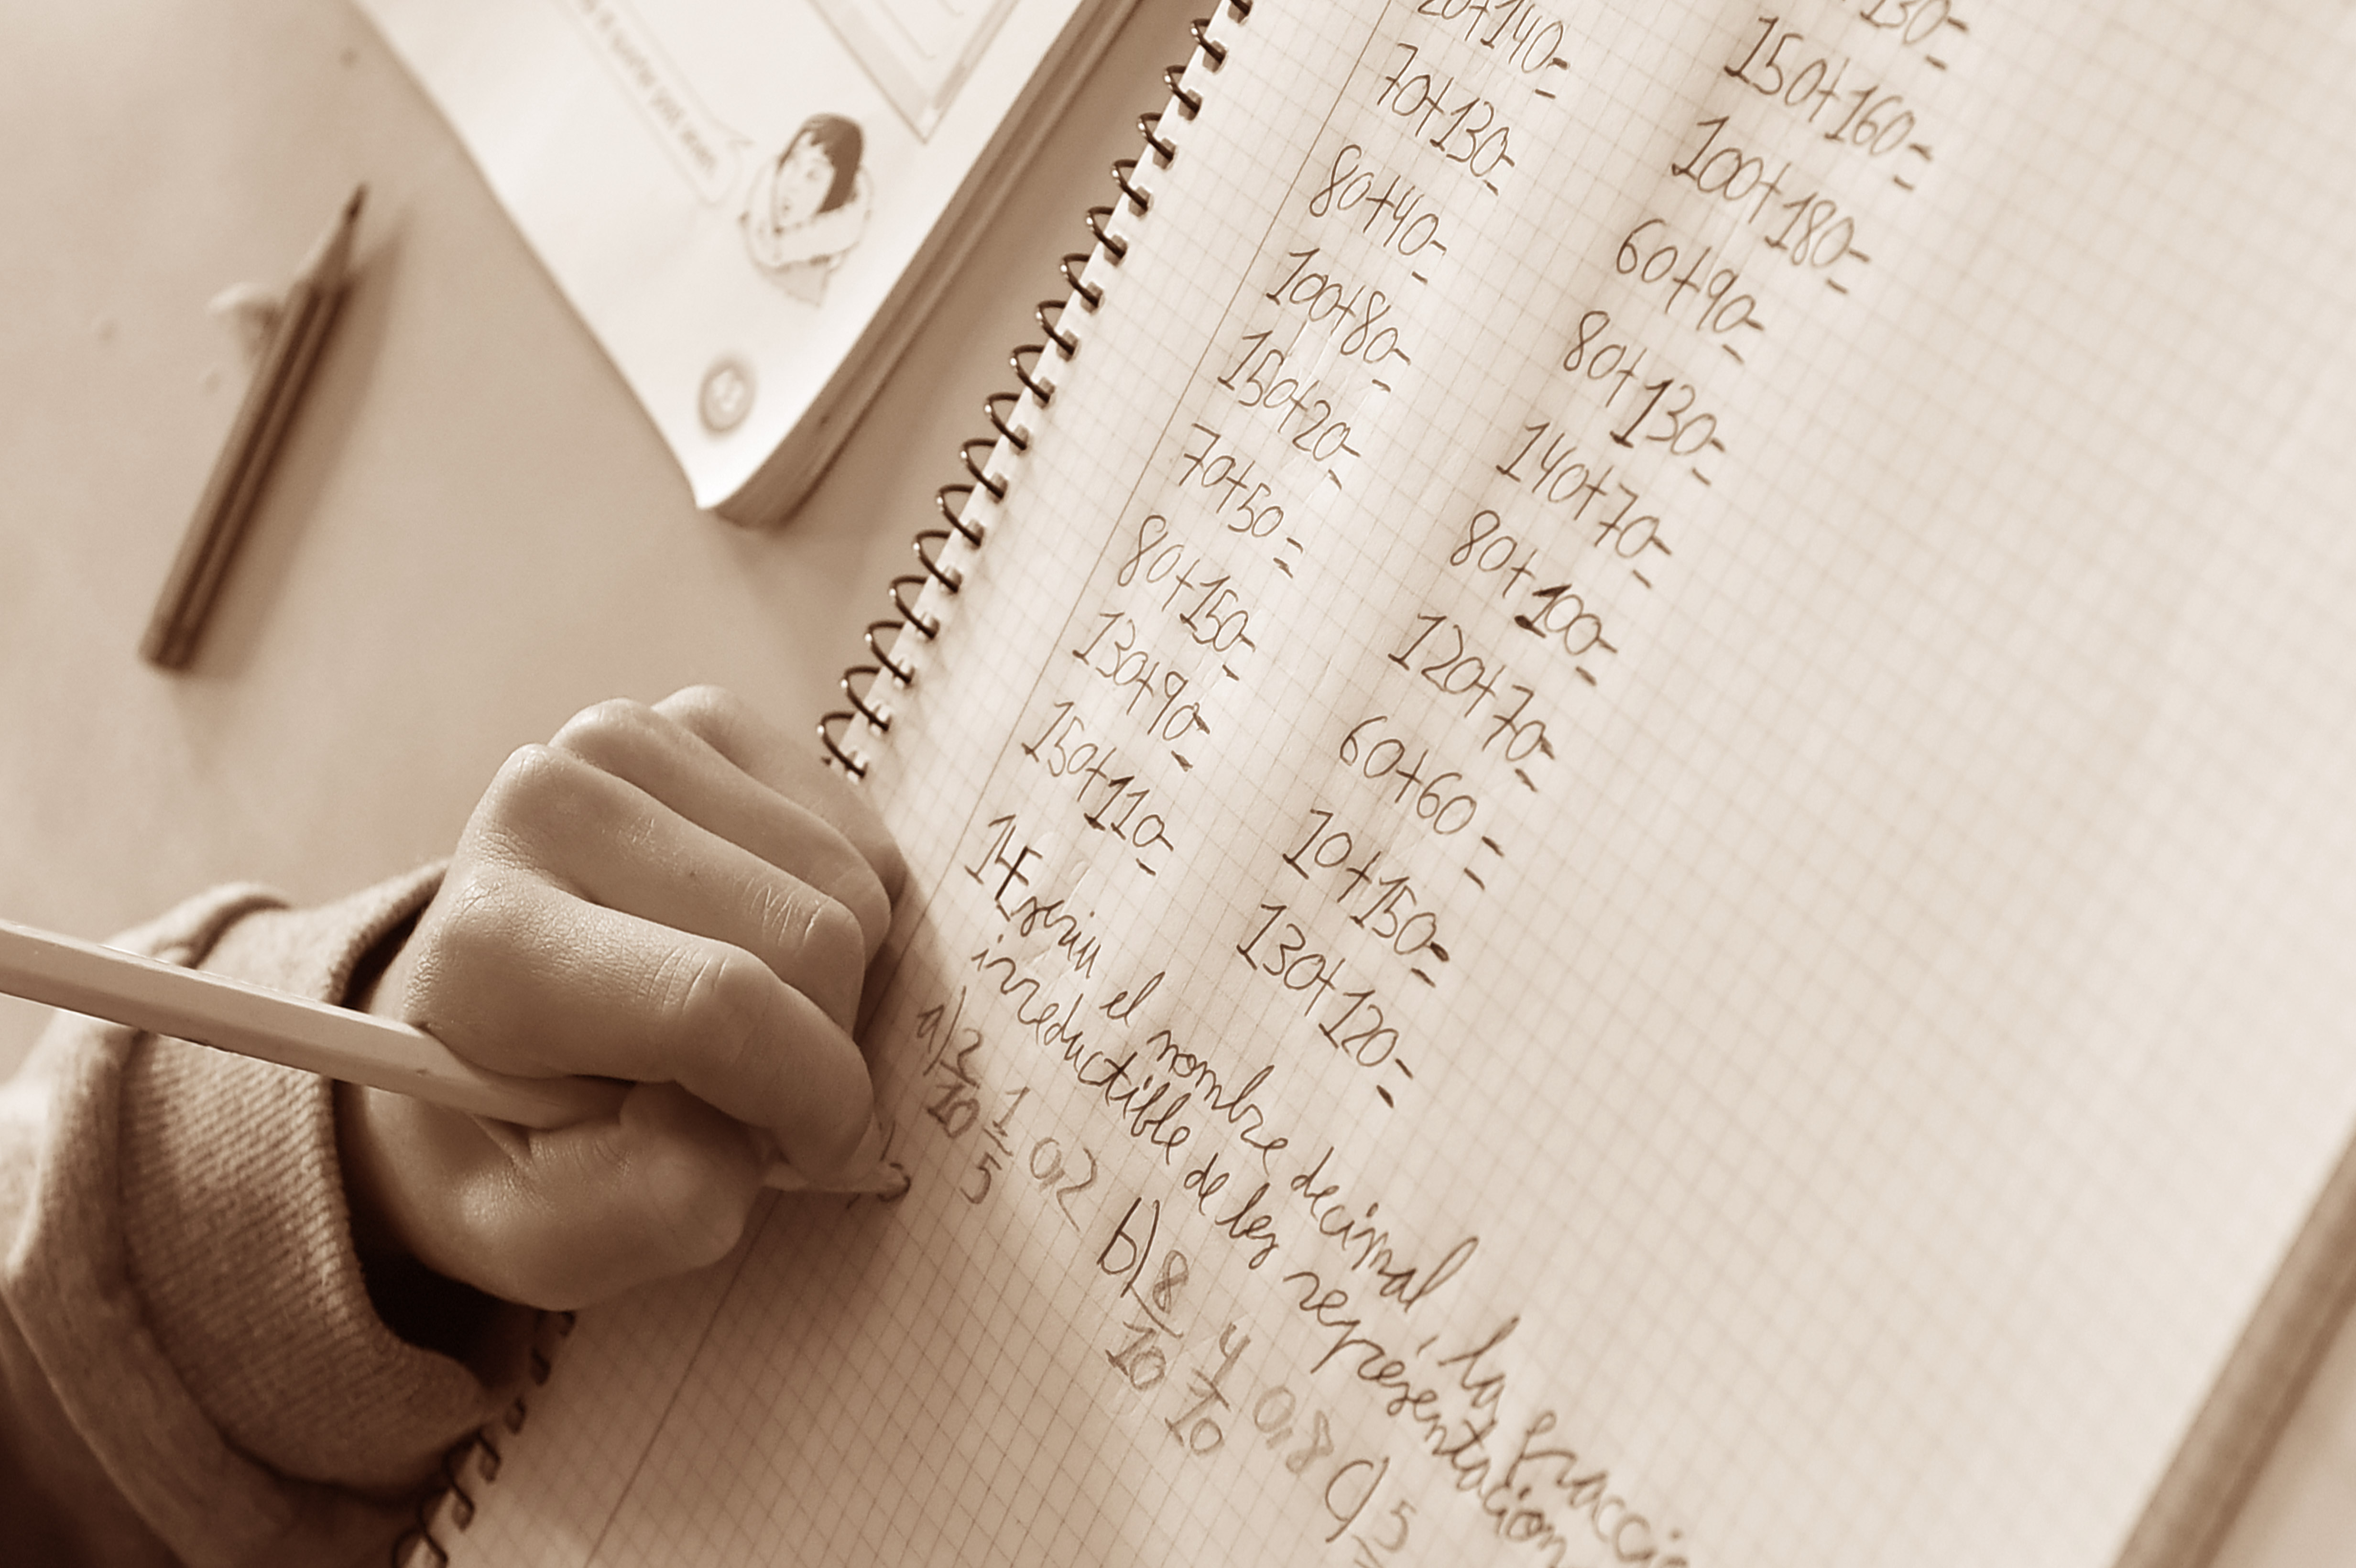 20+140=
70+130=
80+40=
100+80=
150+20=
70+50=
80+150=
130+90=
150+110=
130=
150+160=
100+180=
60+90=
80+130=
140+70=
80+100=
120+70=
60+60=
10+150=
130+120=
14 el nombre decimal, la fracci
irreductible de les representacion
a) 2/10 1/5 0,2 b) 8/10 4/10 0,8 c) 5